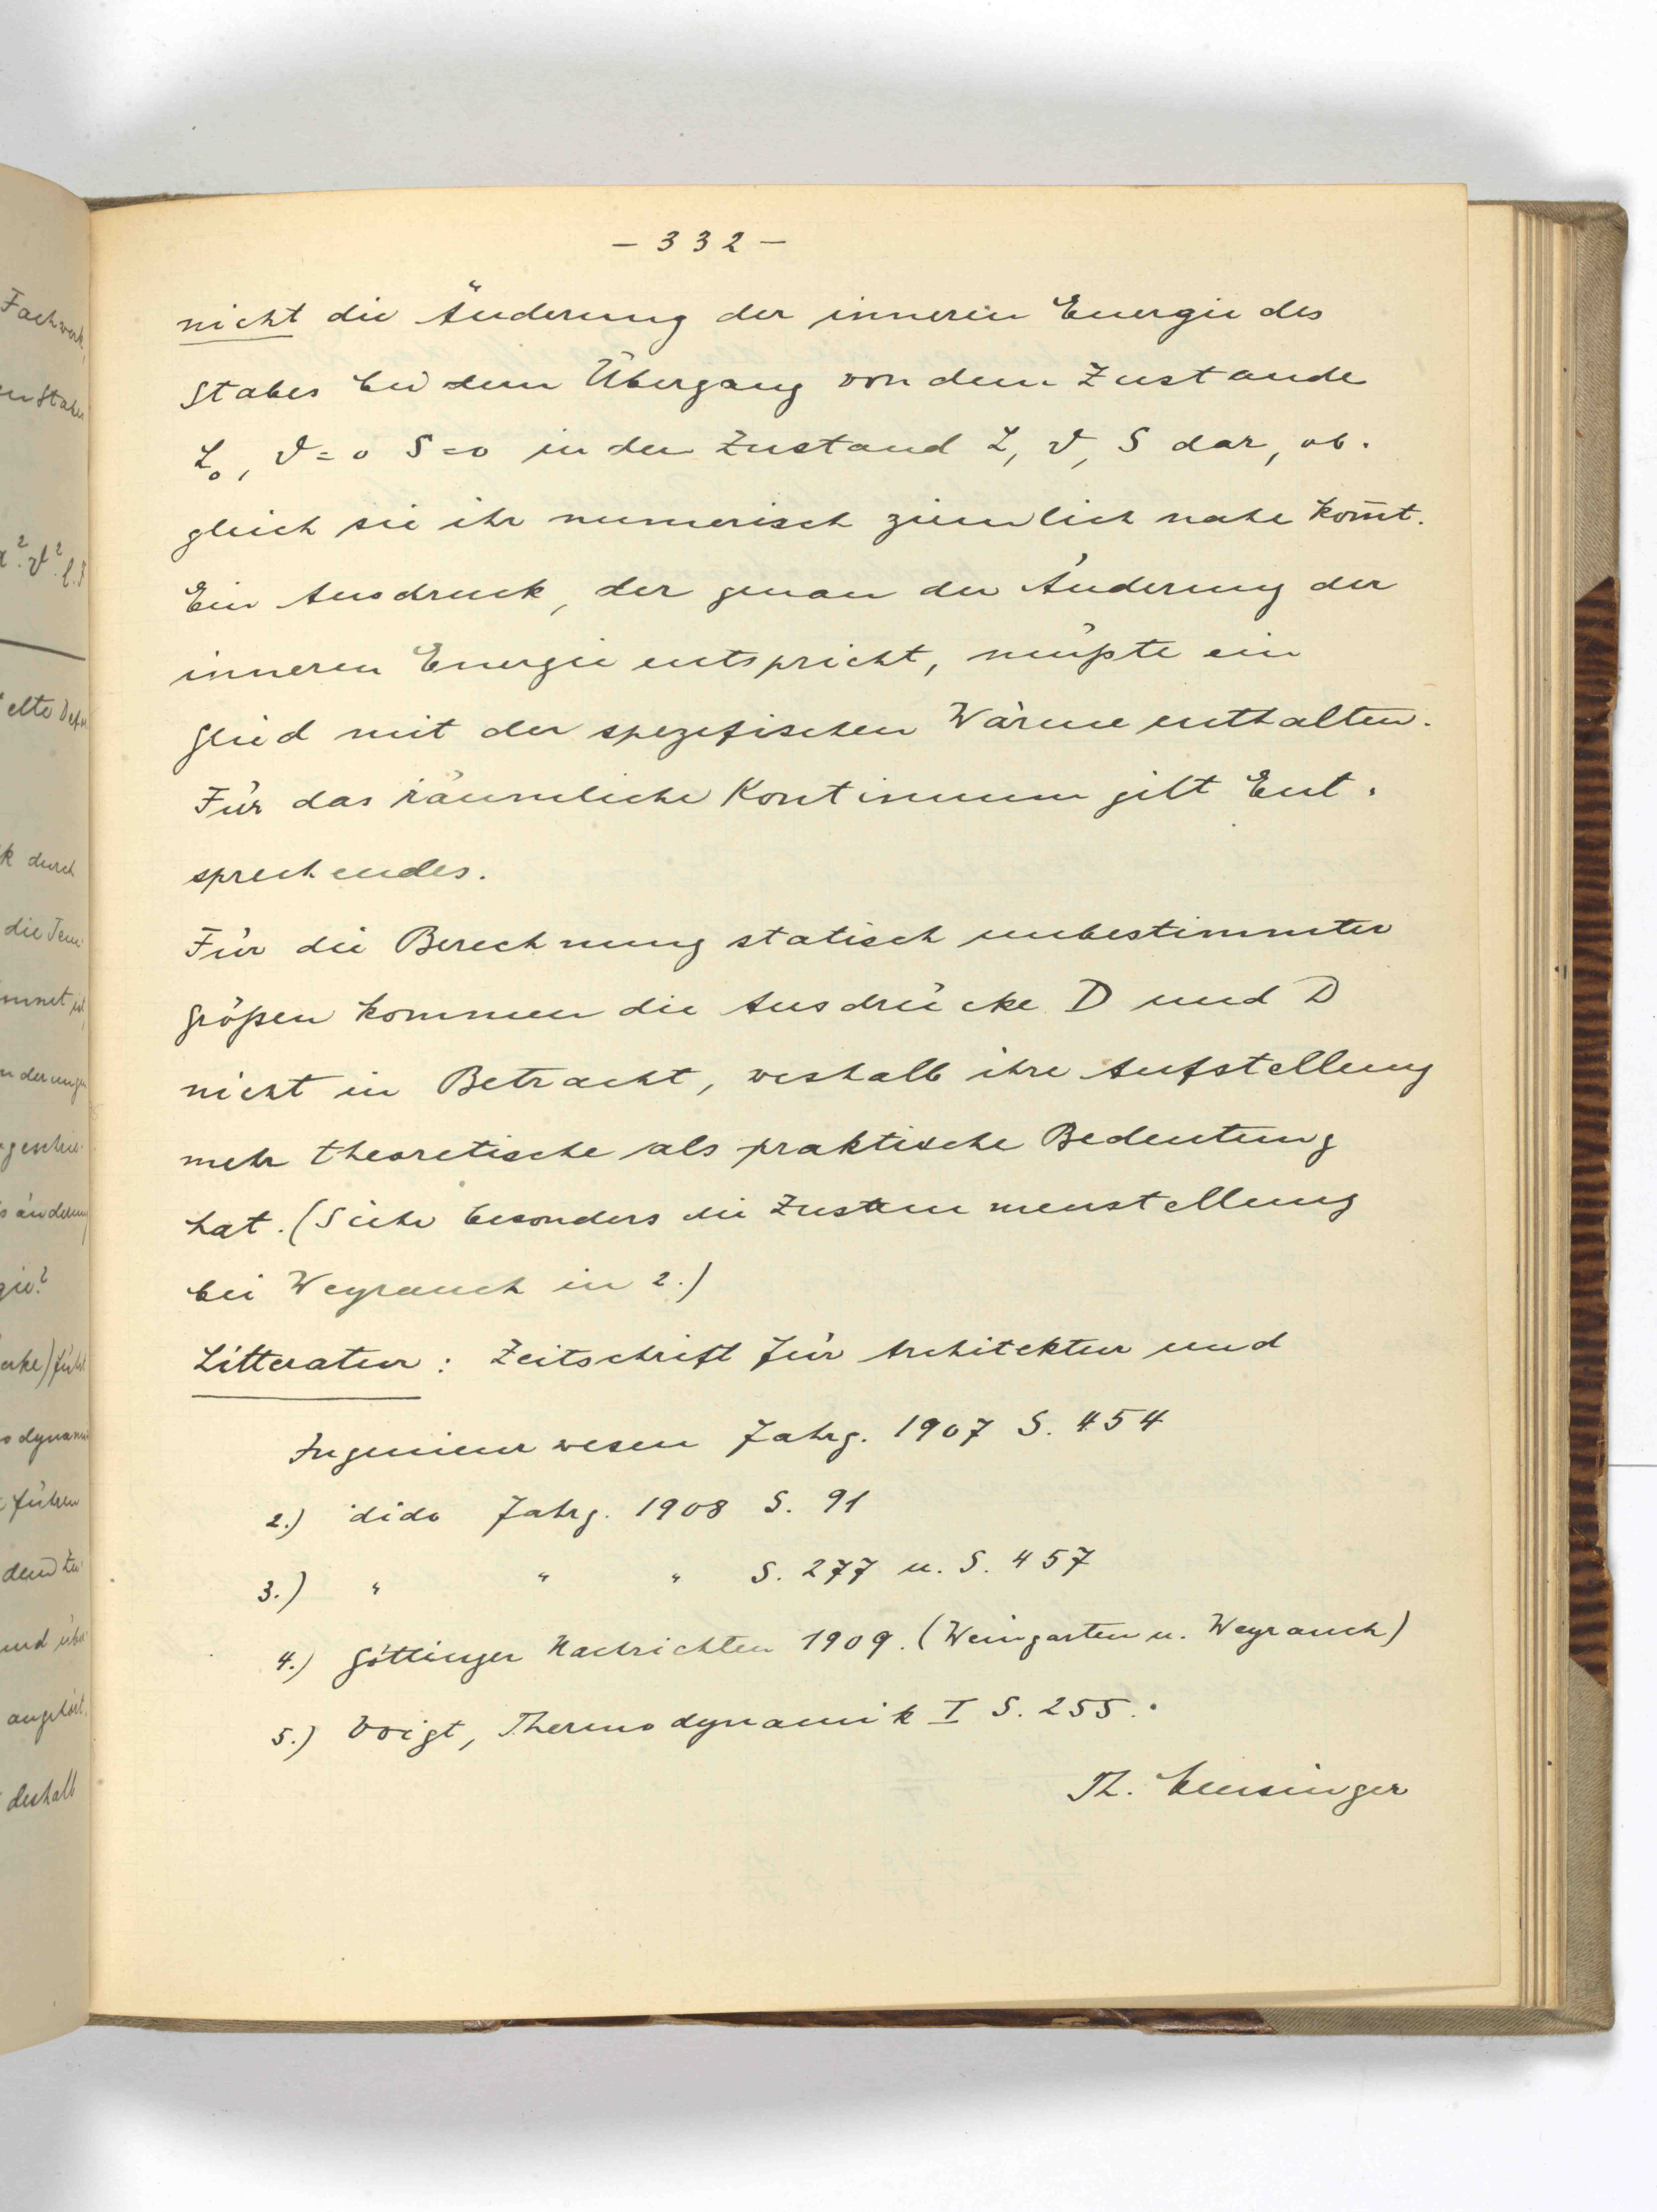 Fachwerk,
en Stabes
α². ϑ². l.
elte Defor
k durch
die Tem-
mmet ist,
nderungen
sänderung
gie?
erke) führt
odynami
führen
dem Zu-
und über
angehört,
deshalb
– 332 –
nicht die Änderung der inneren Energie des
Stabes bei dem Übergang von dem Zustande
L₀, ϑ = 0 S = 0 in den Zustand L, ϑ, S dar, ob-
gleich sie ihr numerisch ziemlich nahe kom̄t.
Ein Ausdruck, der genau der Änderung der
inneren Energie entspricht, müßte ein
Glied mit der spezifischen Wärme enthalten.
Für das räumliche Kontinuum gilt Ent-
sprechendes.
Für die Berechnung statisch unbestimmter
Größen kommen die Ausdrücke D und D
nicht in Betracht, weshalb ihre Aufstellung
mehr theoretische als praktische Bedeutung
hat. (Siehe besonders die Zusammenstellung
bei Weyrauch in 2.)
Litteratur: Zeitschrift für Architektur und
Ingenieurwesen Jahrg. 1907 S. 454
2.) dido Jahrg. 1908 S. 91
3.) " " " S. 277 u. S. 457
4.) Göttinger Nachrichten 1909. (Weingarten u. Weyrauch)
5.) Voigt, Thermodynamik I S. 255.
Th.